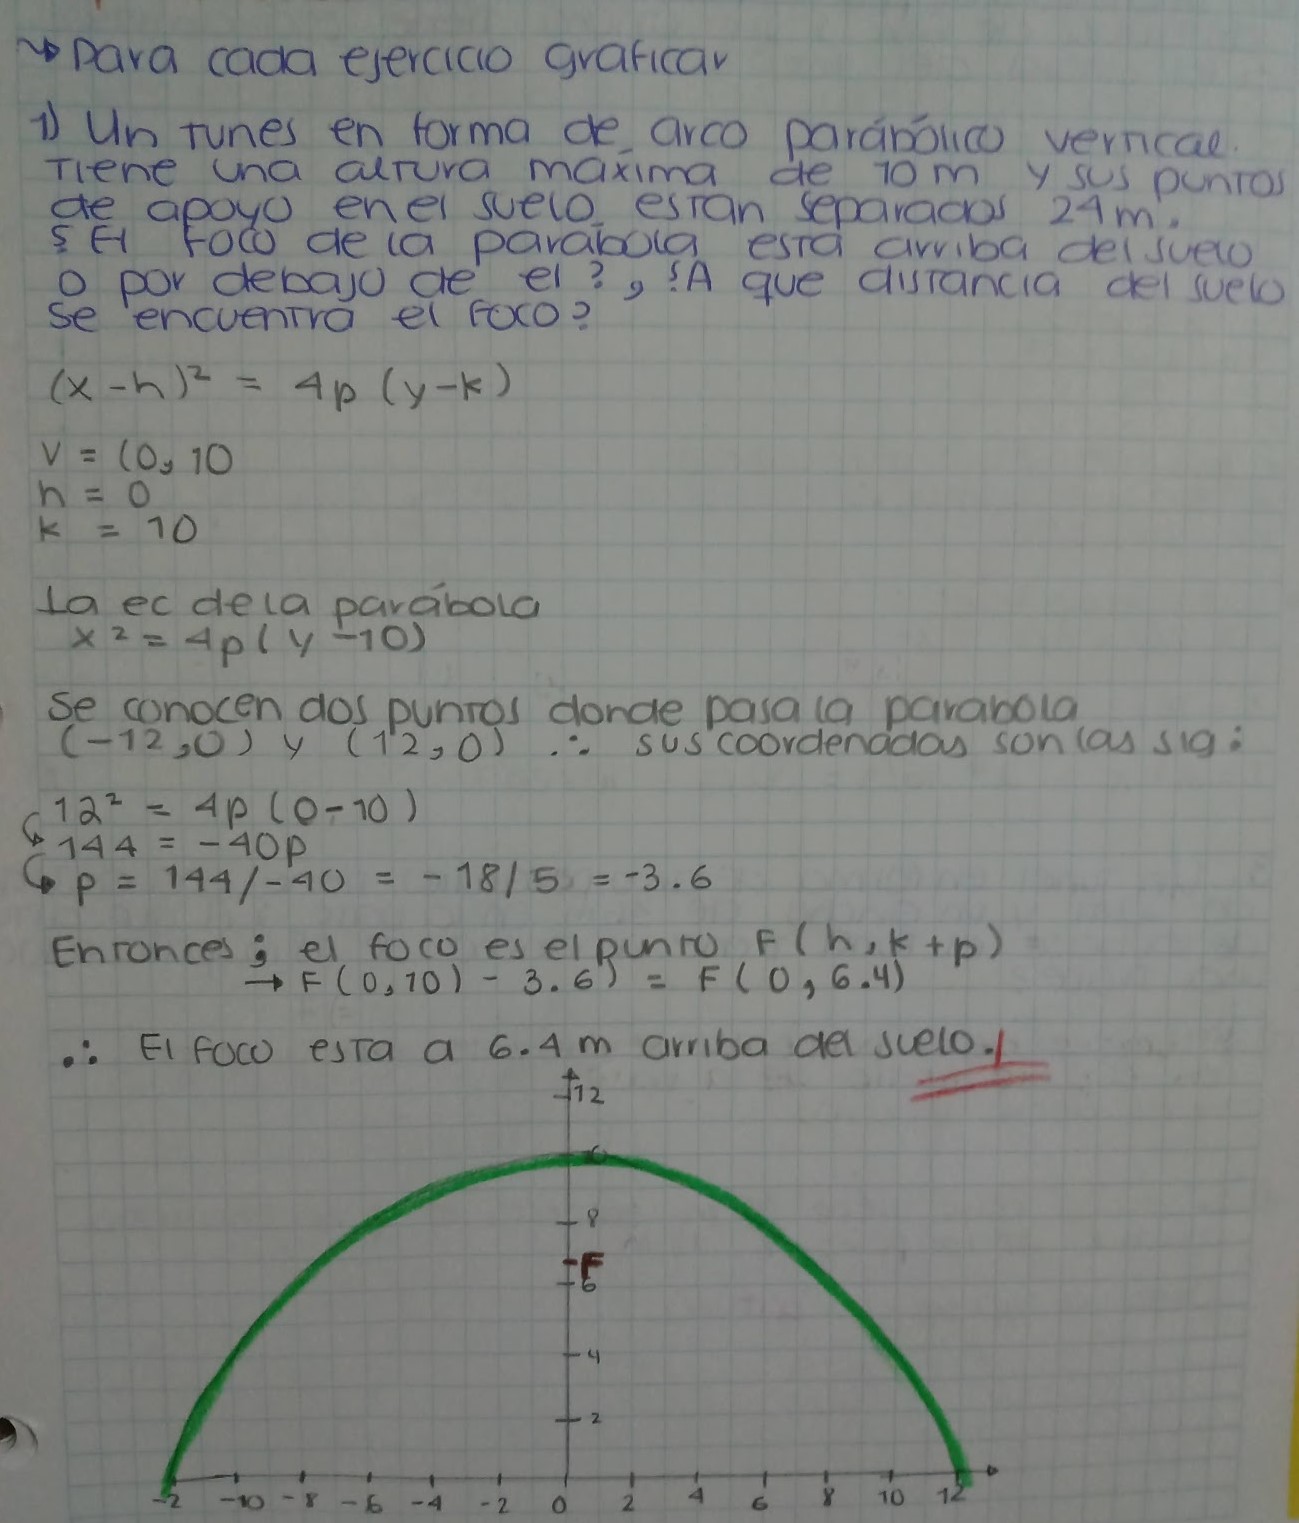 → para cada ejercicio graficar
1) Un tunes en forma de arco parábólico vertical.
Tiene una altura máxima de 10 m y sus puntos
de apoyo en el suelo están separados 24 m.
¿El foco de la parábola está arriba del suelo
o por debajo de el?, ¿A que distancia del suelo
se encuentra el foco?
(x - h)² = 4p (y - k)
V = (0, 10
h = 0
k = 10
La ec de la parábola
x² = 4p ( y - 10)
Se conocen dos puntos donde pasa la parabola
(-12,0) y (12,0) ∴ sus coordenadas son las sig:
12² = 4p (0-10)
144 = -40p
p = 144/-40 = - 18/5 = -3.6
Entonces; el foco es el punto F (h, k + p)
→ F (0,10) - 3.6) = F (0, 6.4)
∴ El foco esta a 6.4 m arriba del suelo.
12
8
F
6
4
2
-2 -10 -8 -6 -4 -2 0 2 4 6 8 10 12